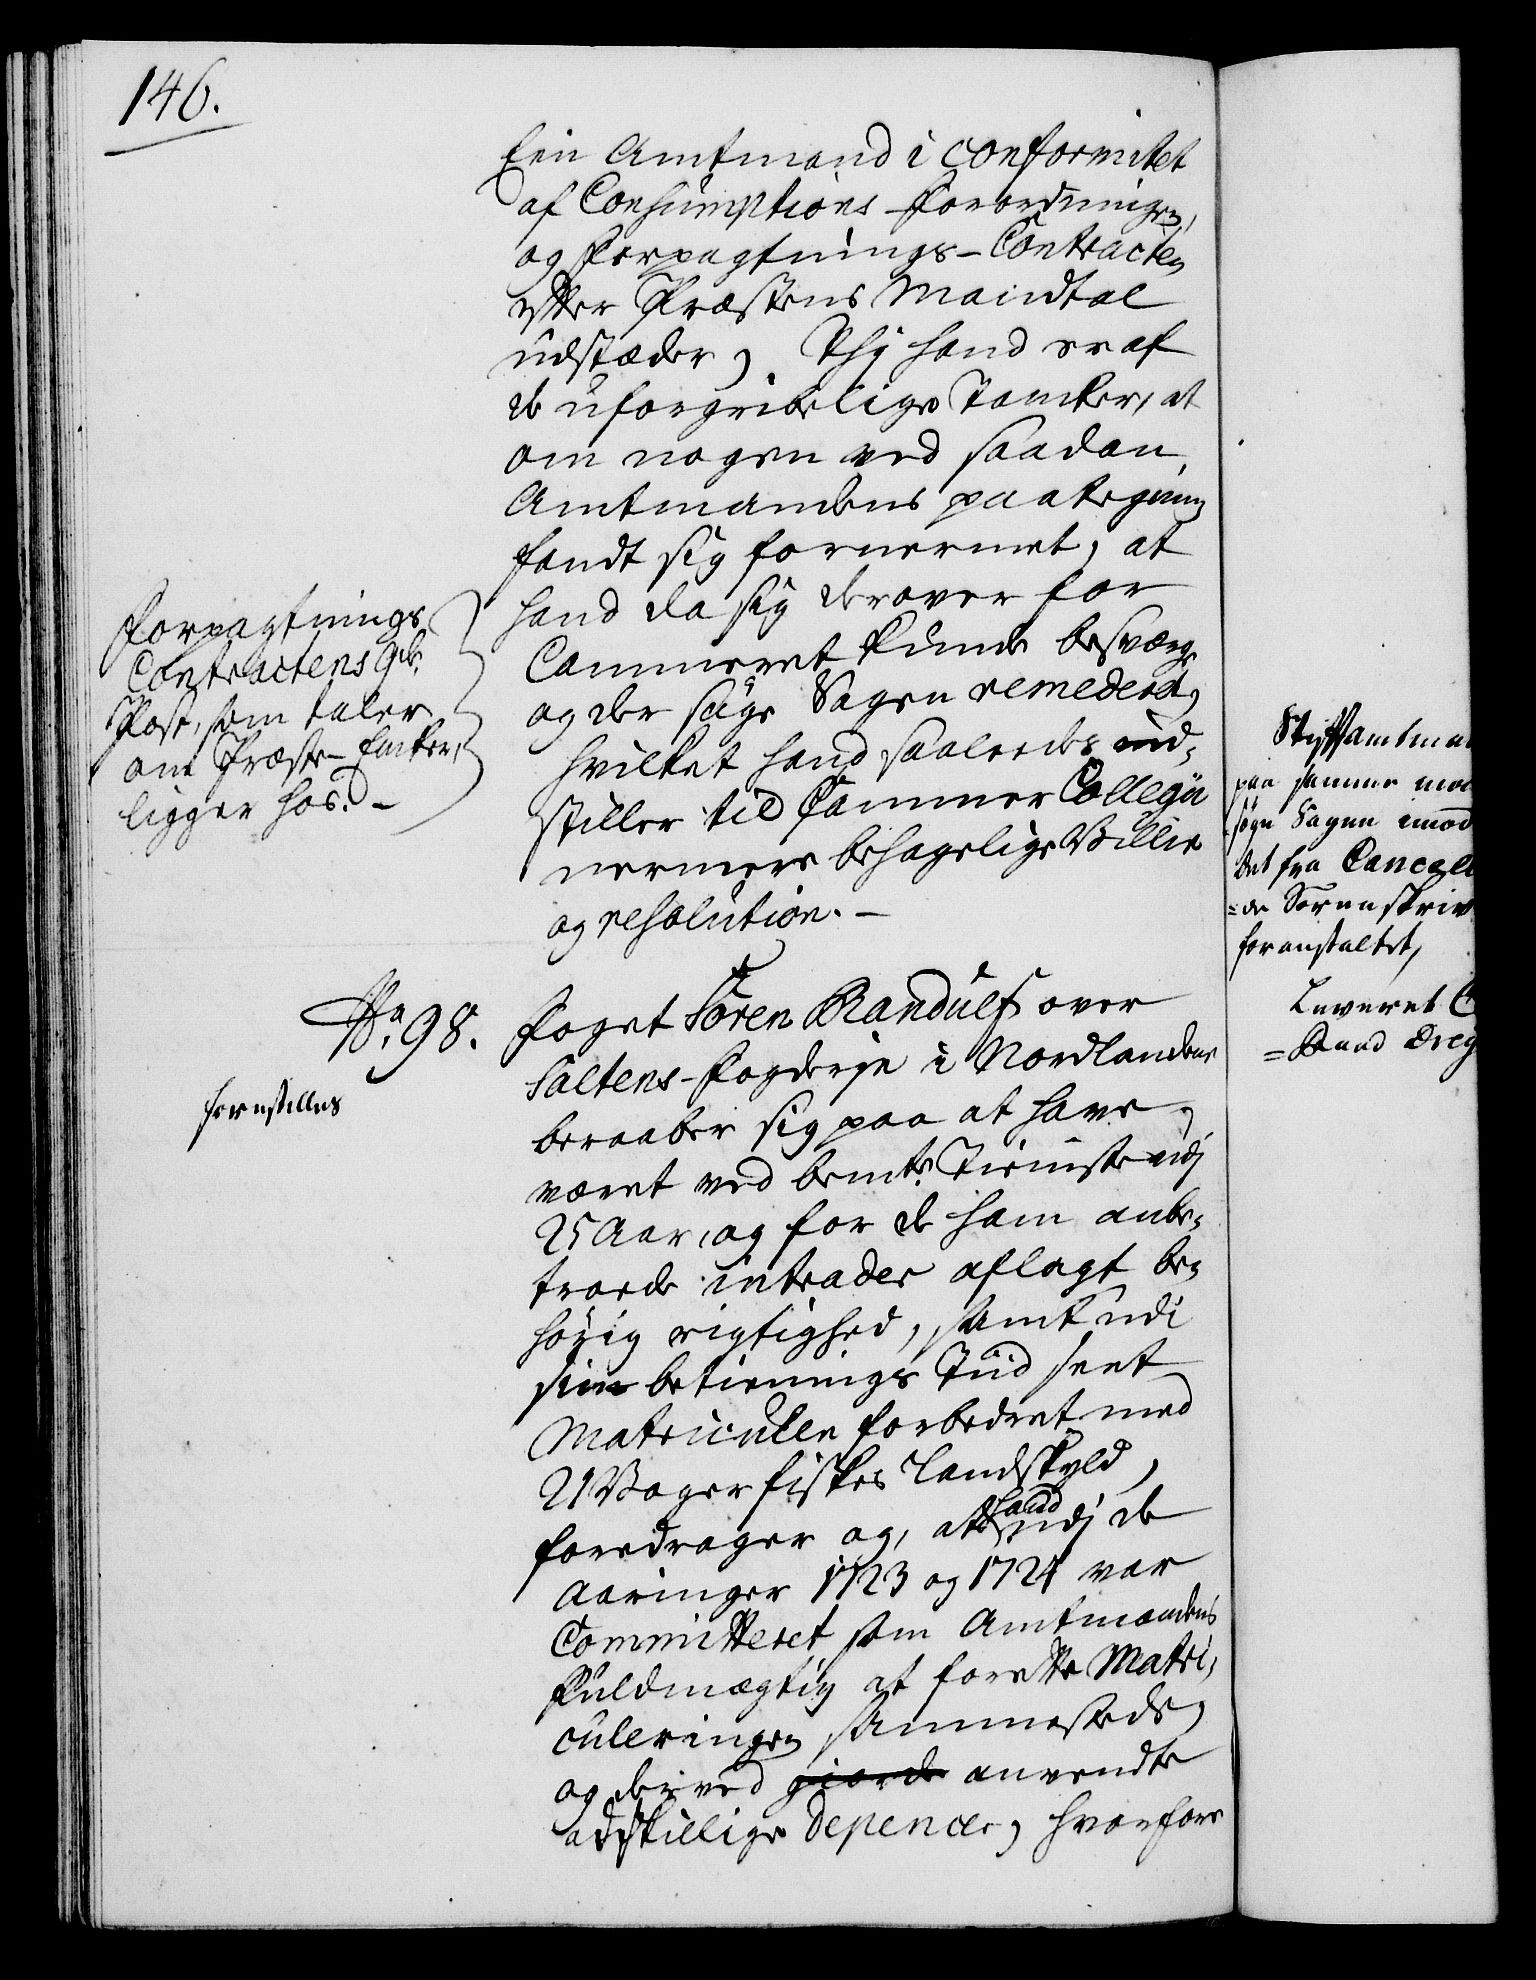 146.
Een Amtmand i conformitet
af Consumptions-Forordningen,
og Forpagtnings-Contracten
efter Præstens Mandtal
udstæder, Thj hand er af
de uforgribelige Tancker, at
om nogen ved saadan
Amtmandens paategning
fandt sig fornermet, at
hand da sig derover for
Cammeret kunde besværge
og der søge Sagen remederet,
hvilket hand saaledes ind-
stiller til Cammer Collegii
nermere behagelige Villie
og resolution. –
Forpagtnings
Contractens 9de
Post, som taler
om Præste-Encker,
ligger hos. –
No. 98.
forestilles
Foget Sören Randulf over
Saltens-Fogderje i Nordlandene
beraaber sig paa at have
været ved bemte Tieniste udj
25 Aar, og for de ham anbe-
troede intrader aflagt be-
hörig rigtighed, samt udi
sin betienings Tiid seet
Matriculen forbedret med
21 Voger fiskes Landskyld,
foredrager og, at hand udj de
Aaringer 1723 og 1724 var
Committeret som Amtmandens
Fuldmægtig at forette Matri-
culeringen sammesteds,
og derved giorde anvendte
adskillige Depencer, hvorfore
Stiftamtma
paa samme
søge Sagen imod
det fra Cancell
=de Sorenskriv
foranstaltet,
Leveret C